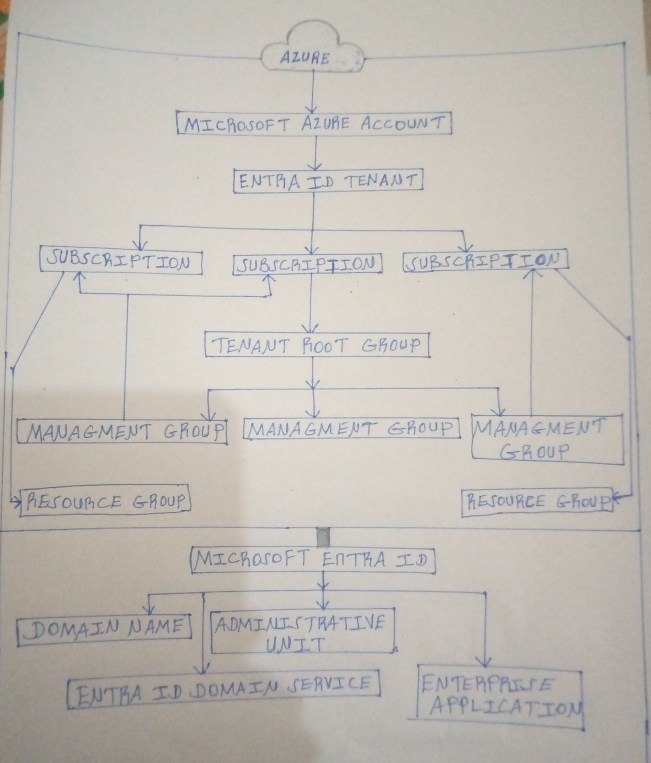 AZURE
MICROSOFT AZURE ACCOUNT
ENTRA ID TENANT
SUBSCRIPTION
SUBSCRIPTION
SUBSCRIPTION
TENANT ROOT GROUP
MANAGMENT GROUP
MANAGMENT GROUP
MANAGMENT
GROUP
RESOURCE GROUP
RESOURCE GROUP
MICROSOFT ENTRA ID
DOMAIN NAME
ADMINISTRATIVE
UNIT
ENTRA ID DOMAIN SERVICE
ENTERPRISE
APPLICATION